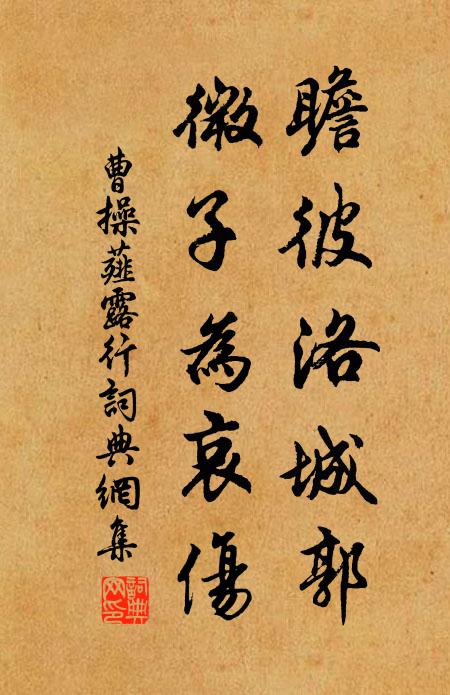 瞻彼洛城郭
微子為哀傷
曹操薤露行詞典網集
詞典网印